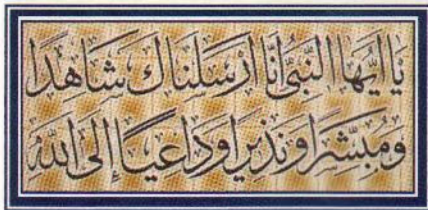 يَا اَيُّهَا النَّبِىُّ اِنَّا اَرْسَلْنَاكَ شَاهِدًا
وَمُبَشِّرًا وَنَذِيرًا وَدَاعِيًا إِلَى اللَّهِ